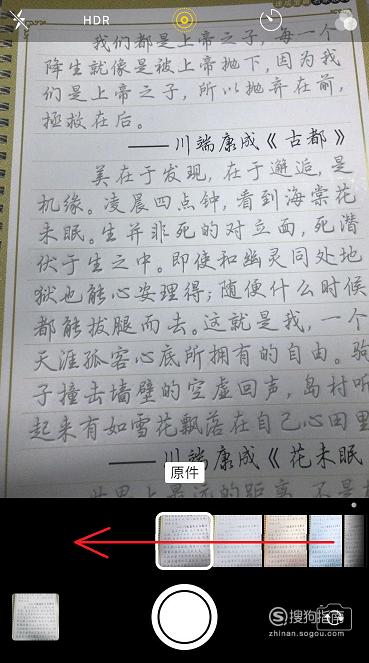 HDR
我们都是上帝之子，每一个
降生就像是被上帝抛下，因为我
们是上帝之子，所以抛弃在前，
拯救在后。
——川端康成《古都》
美在于发现，在于邂逅，是
机缘。凌晨四点钟，看到海棠花
未眠。生并非死的对立面，死潜
伏于生之中。即使和幽灵同处地
狱也能心安理得；随便什么时候
都能拔腿而去。这就是我，一个
天涯孤客心底所拥有的自由。驹
子撞击墙壁的空虚回声，岛村听
起来有如雪花飘落在自己心田里
——川端康成《花未眠
世界上最远的距离，不是
原件
搜狗指南
zhinan.sogou.com